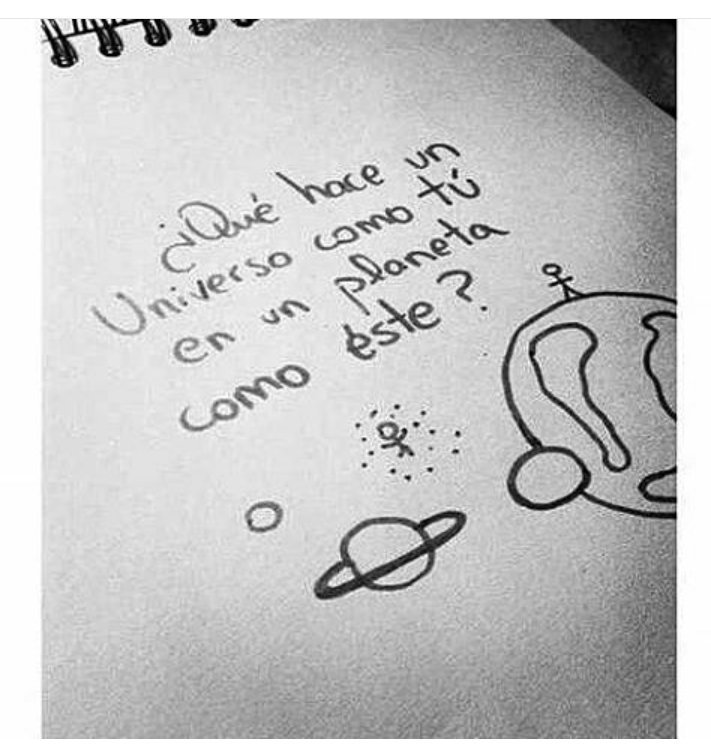 ¿Qué hace un
Universo como tú
en un planeta
como éste?